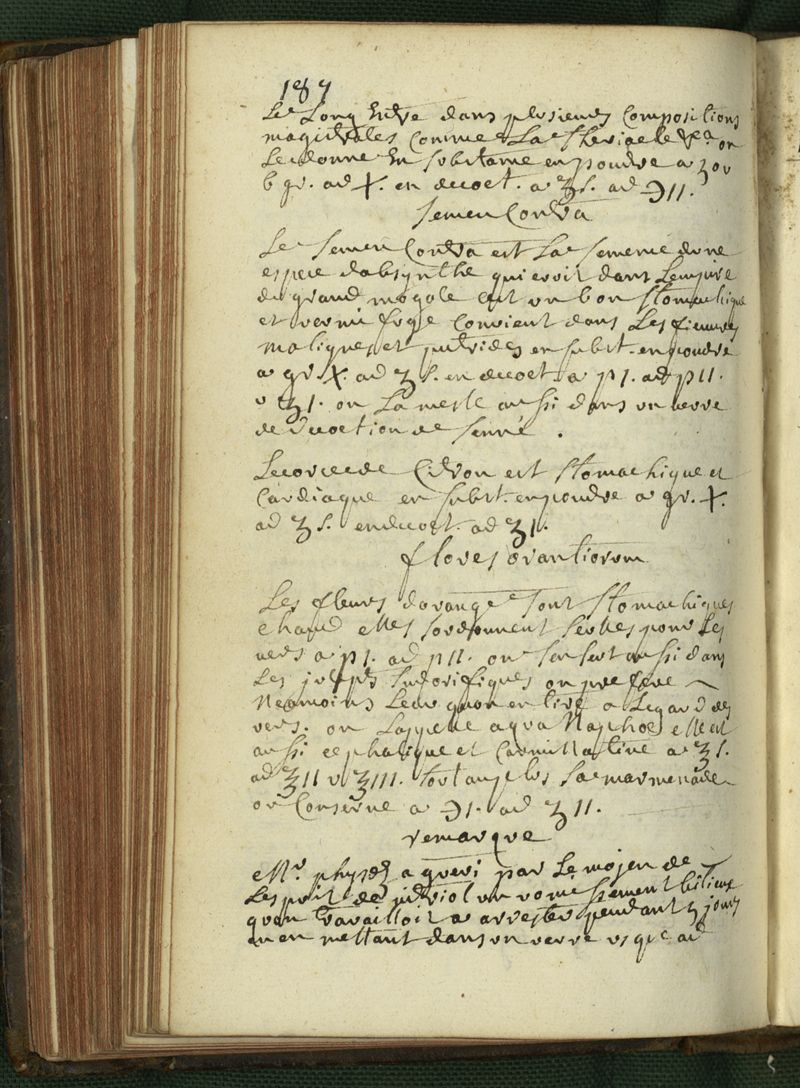 187
Le Long Entre dans plusieurs Compositions
magistrales Comme La Theriacle &ca on
Le donne En substance en poudre a ʒ ou
6 gr. ad X. en decoct. a ʒ s. ad ℈ II.
Semen Contra
Le Semen Contra est La Semence dune
espece dabsynthe qui croit dans Lempire
du grand mogole est un bon stomachique
et vermifuge Convient dans Les fievres
malignes et putrides en subst. en poudre
a gr. X. ad ʒ s. en decoct. a p I. ad p II.
v ʒ I. on La mesle aussi dans un verre
de decoction de senné .
Lecorce de Citron est stomachique et
Cardiaque en subst. en poudre a gr. X.
ad ʒ s. en decoct. ad ʒ I.
flores orantiorum
Les fleurs dorange sont stomachiques
chaud elles sordonnent seches pour Les
vers a p I. ad p II. on sen sert aussi dans
Les juleps sudorifiques on prefere
Neamoins Leau quon en tire a Legard des
vers. on Lappelle aqua Naphae elle est
aussi cephalique et Carminative a ʒ s.
ad ʒ II v ʒ III. surtout plus La marmenade
ou Conserve a ℈ I. ad ʒ II.
remarque
Mr. physes a gueri par Le mojen de
Lesprit de vitriol un vomissement bilieux
quon travailloit a arrester pendant 3 jours
en en mettant dans un verre usque ad